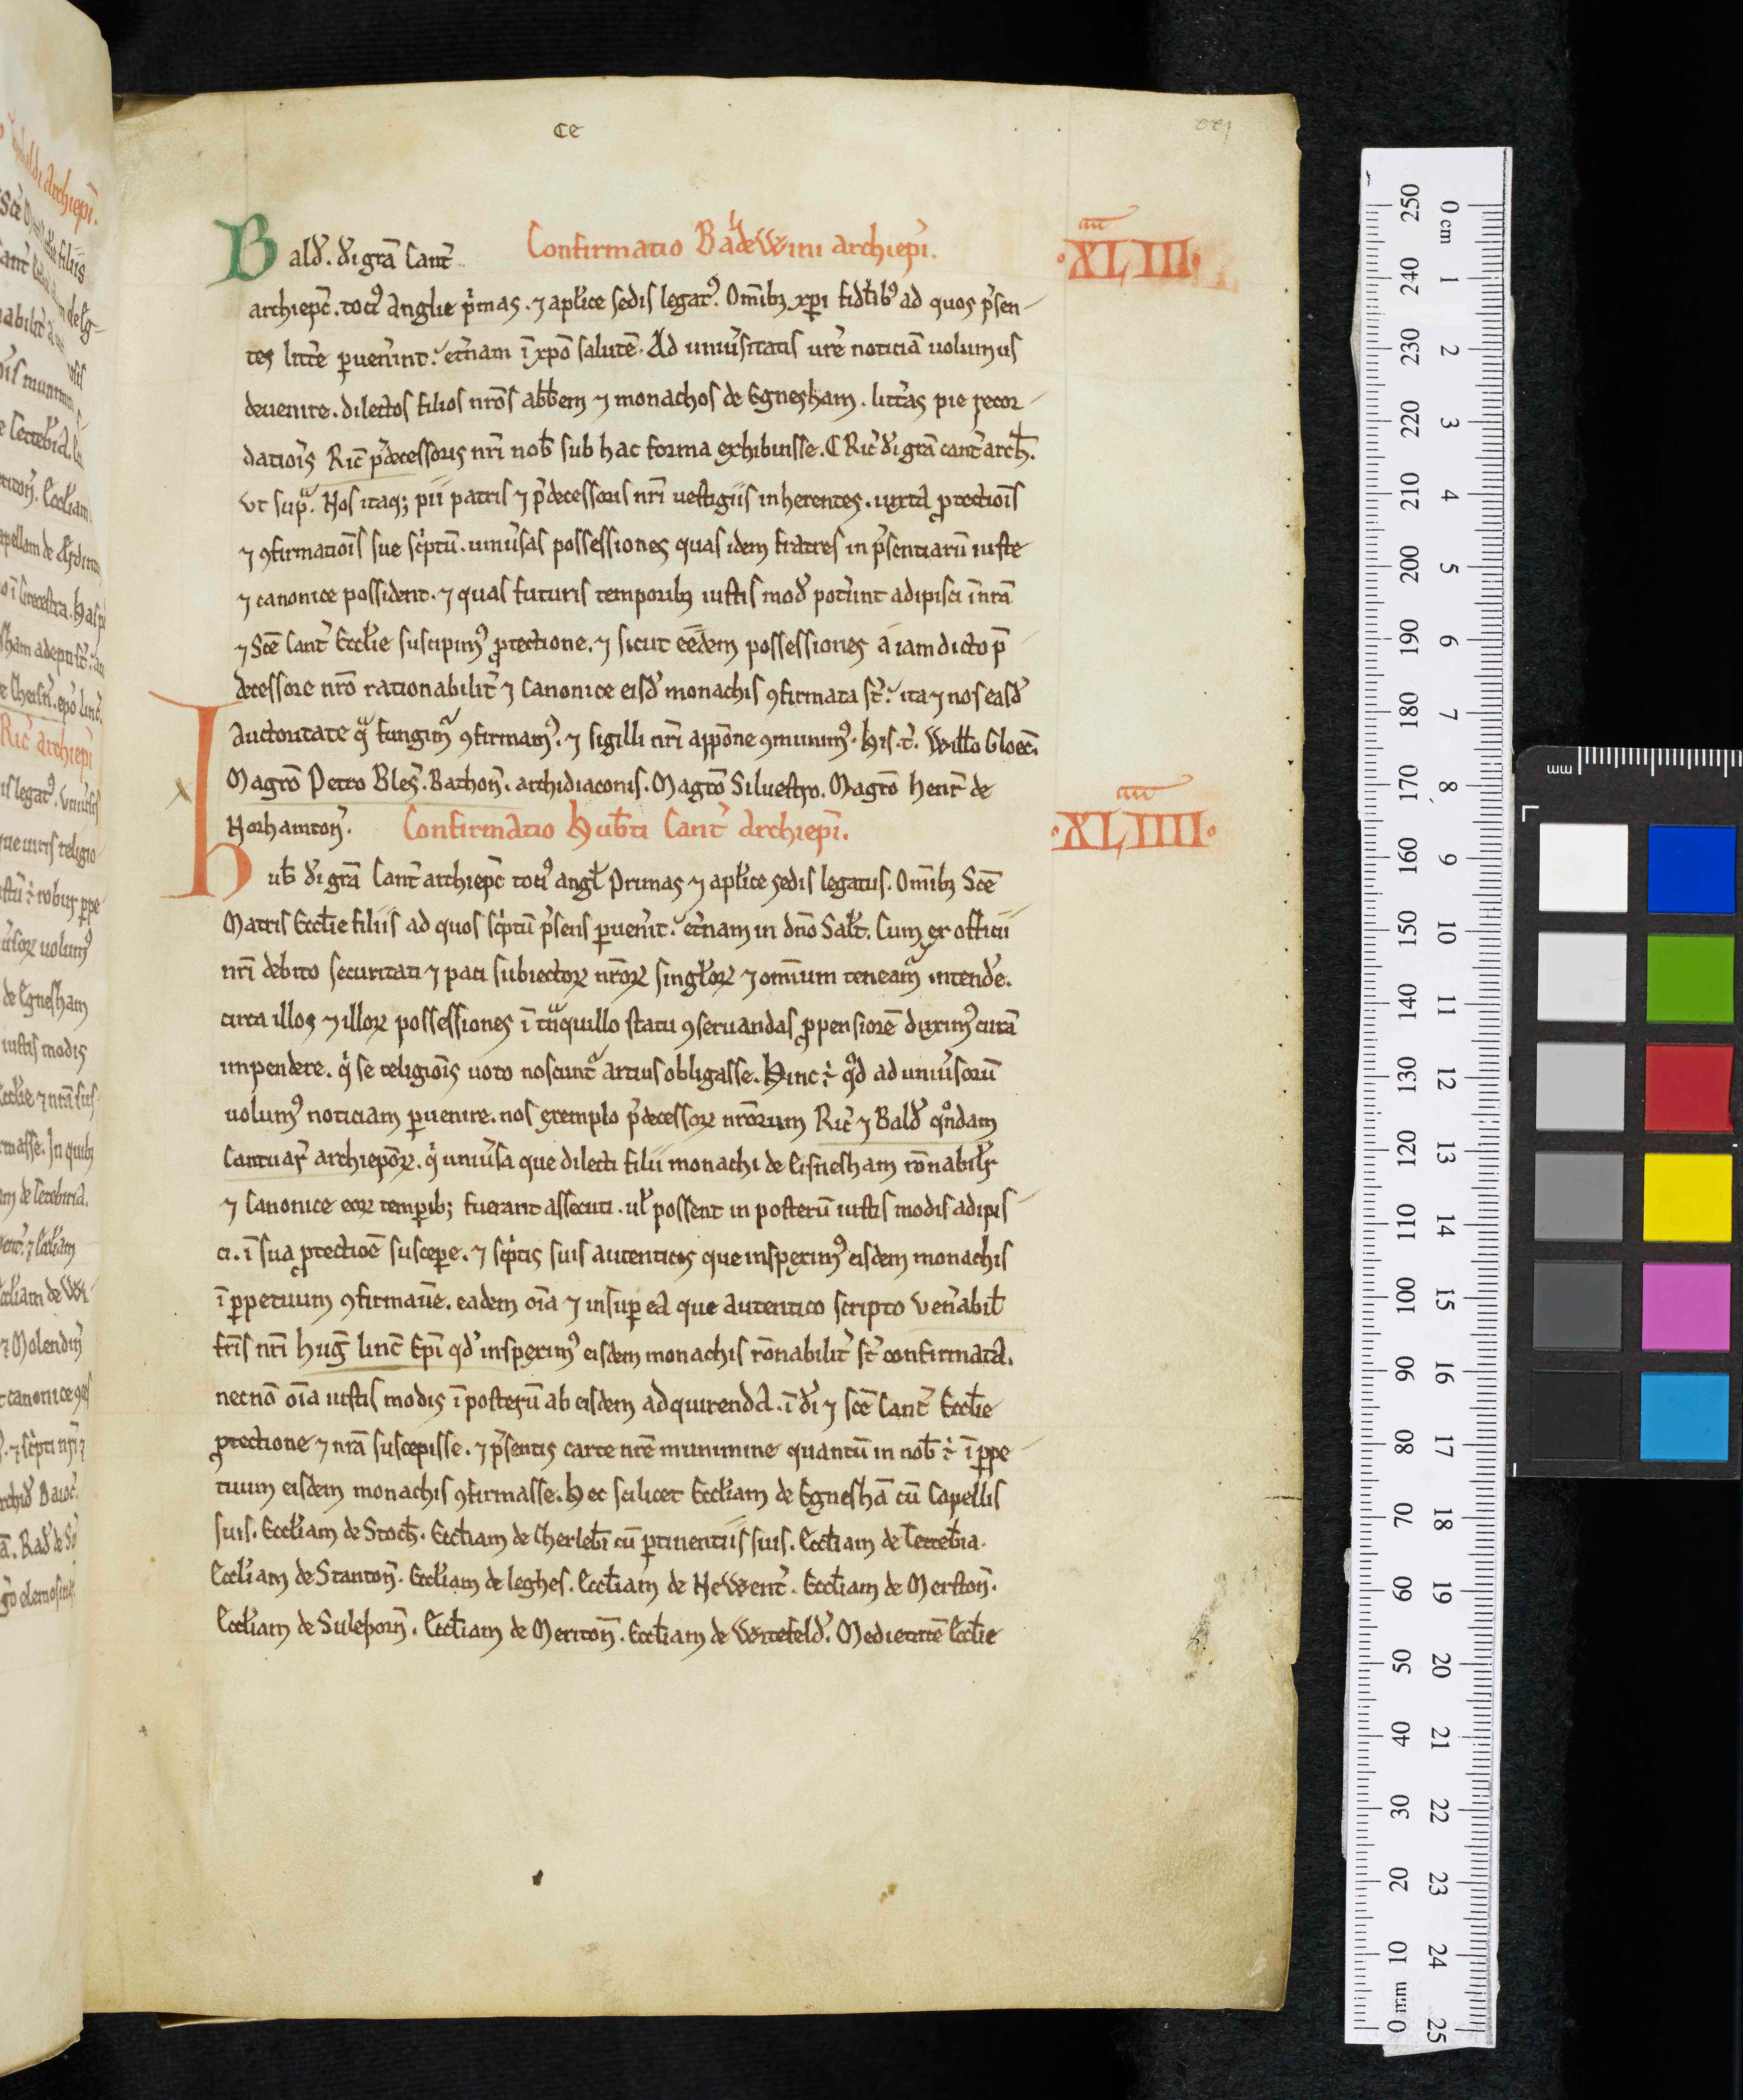 ce
Confirmatio Baldewini archiep̄i.
·XLIII·
Bald̉. d̉i gr̄a Cant̉
archiep̄c. toci⁹ anglie p̉mas. ⁊ apl̉ice sedis legat⁹. Omīb; xp̄i fidl̉ib⁹ ad quos p̉sen-
tes litt̉e ꝑuen̉int. et̉nam ī xp̄o salutē. Ad uniủsitatis ur̄e noticiā uolumus
deuenire. dilectos filios nr̄os abb̄em ⁊ monachos de Egnesham. litt̉as pie recor-
datiōis Ric̄ p̉decessoris nr̄i nob̄ sub hac forma exhibuisse. Ric̄ d̉i gr̄a cant̉ arch̄.
Vt sup̄. Nos itaq; pii patris ⁊ p̉decessoris nr̄i uestigiis inherentes. iuxta ꝓtectiōis
⁊ ꝯfirmatiōis sue sc̉ptū. uniủsas possessiones quas idem fratres in p̉sentiarū iuste
⁊ canonice possident. ⁊ quas futuris temporib; iustis mod̉ pot̉unt adipisci ī nr̄a
⁊ Sc̄e Cant̉ Eccl̉ie suscipim⁹ ꝓtectione. ⁊ sicut eedem possessiones a iam dicto p̄
decessore nr̄o rationabilit̉ ⁊ Canonice eisd̉ monachis ꝯfirmata st̉. ita ⁊ nos easd̉
Auctoritate q̄ fungim̉ ꝯfirmam⁹. ⁊ sigilli nr̄i appōne ꝯmunim⁹. His. t̉. Will̄o Gloec̄.
Magr̄o Petro Bles̉. Bathon̄. archidiaconis. Magr̄o Siluestro. Magr̄o Henr̉ de
Norhamton̄. Confirmatio Hub̄ti Cant̉ Archiep̄i.
·XLIIII·
Hub̄ d̉i gr̄a Cant̉ archiep̄c toci⁹ angl̉ Primas ⁊ apl̉ice sedis legatus. Omīb; Sc̄e
Matris Eccl̄ie filiis ad quos sc̉ptū p̉sens ꝑuen̉it. et̉nam in dn̄o Sal̄t. Cum ex officii
nr̄i debito securitati ⁊ paci subiectoꝝ nr̄oꝝ singl̉oꝝ ⁊ omīum teneam̉ intend̉e.
circa illos ⁊ illoꝝ possessiones ī tᵃquillo statu ꝯseruandas ꝓpensiorē duxim⁹ curā
impendere. q̉ se religiōis uoto noscunt̉ artius obligasse. Hinc ē̉ q̉d ad uniủsorū
uolum⁹ noticiam ꝑuenire. nos exemplo p̉decessoꝝ nr̄orum Ric̄ ⁊ Bald̉ qⁿdam
Cantuar̉ archiep̄oꝝ. q̉ uniủsa que dilecti filii monachi de Eisnesham rōnabilr̉
⁊ Canonice eoꝝ temꝑib; fuerant assecuti. ul̉ possent in posterū iustis modis adipis-
ci. ī sua ꝓtectiōe suscepe̅. ⁊ sc̉ptis suis autenticis que inspexim⁹ eisdem monachis
ī ꝑpetuum ꝯfirmau̅e. eadem oīa ⁊ insuꝑ ea que autentico scripto Ven̉abil̄
fr̄is nr̄i Hug̅ linc̄ Ep̄i qd̉ inspexim⁹ eisdem monachis rōnabilit̉ st̉ confirmata.
necnō oīa iustis modis ī posterū ab eisdem adquirenda. ī d̉i ⁊ sc̄e Cant̉ Eccl̄ie
ꝓtectione ⁊ nr̄a suscepisse. ⁊ p̉sentis carte nr̄e munimine quantū in nob̄ ē̉ ī ꝑpe-
tuum eisdem monachis ꝯfirmasse. Hec scilicet Eccl̉iam de Egneshā cū Capellis
suis. Eccl̉iam de Stoch̄. Eccl̄iam de Cherleb̄i cū ꝑtinentiis suis. Eccl̄iam de Tetteb̄ia.
Eccl̉iam de Stanton̄. Eccl̉iam de leghes. Eccl̄iam de Newent̉. Eccl̄iam de Merston̄.
Eccl̉iam de Sulethorn̄. Eccl̄iam de Meriton̄. Eccl̄iam de Writefeld̉. Medietatē Eccl̄ie